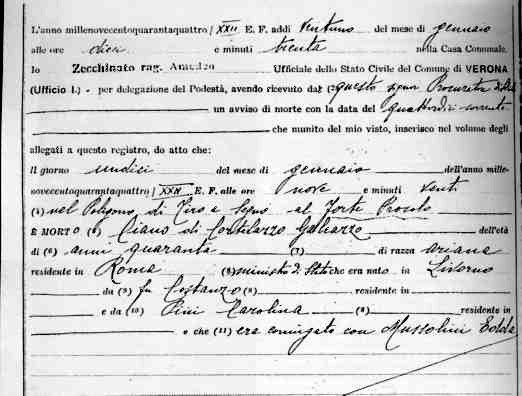 L'anno millenovecentoquarantaquattro / XXII E. F. addì ventuno del mese di gennaio
alle ore dieci e minuti trenta nella Casa Comunale.
Io Zecchinato rag. Amedeo Ufficiale dello Stato Civile del Comune di VERONA
(Ufficio I.) - per delegazione del Podestà, avendo ricevuto dal (2) questo signor Procuratore di Stato
un avviso di morte con la data del quattordici corrente
che munito del mio visto, inserisco nel volume degli
allegati a questo registro, do atto che:
Il giorno undici del mese di gennaio dell'anno mille-
novecentoquarantaquattro / XXII E. F. alle ore nove e minuti venti
(4) nel Poligono di Tiro a Segno al Forte Procolo
È MORTO (5) Ciano di Cortellazzo Galeazzo dell'età
di (6) anni quaranta (7) di razza ariana
residente in Roma (8) ministro di Stato che era nato in Livorno
da (9) fu Costanzo (8) residente in
e da (10) Pini Carolina (8) residente in
e che (11) era coniugato con Mussolini Edda